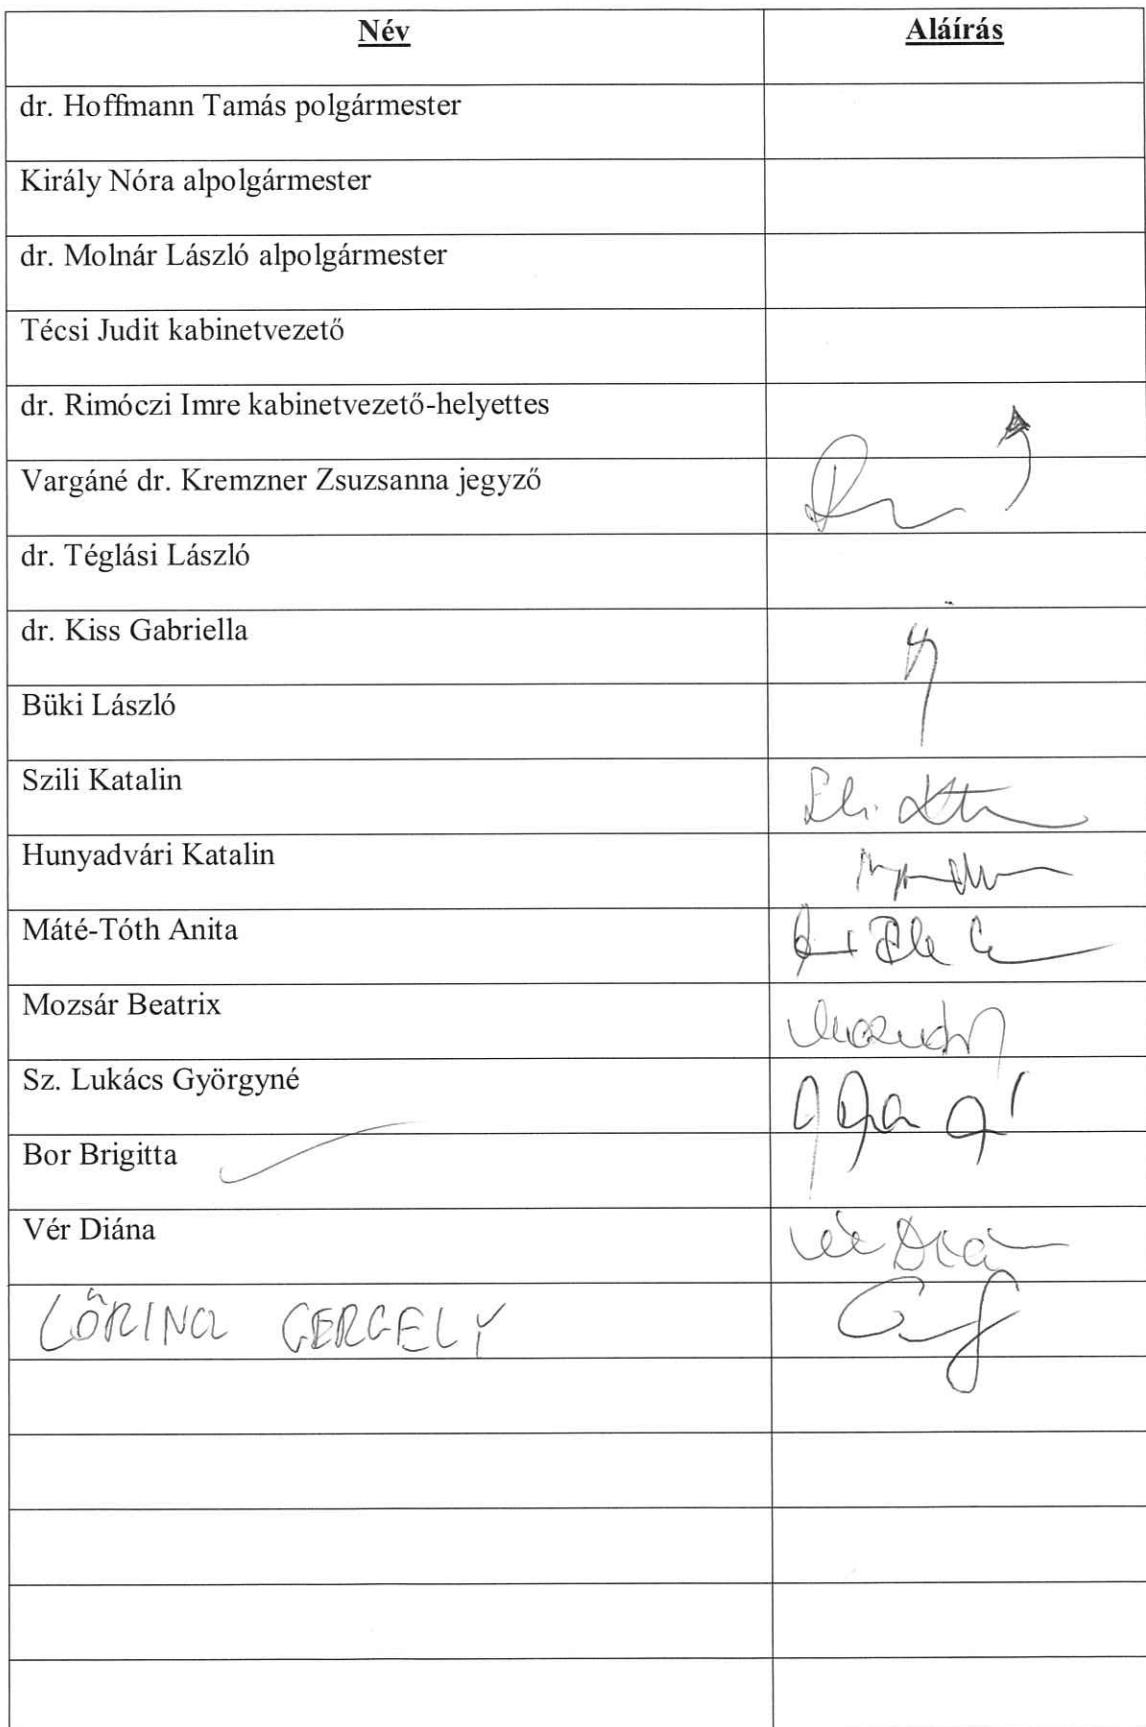 Név Aláírás
dr. Hoffmann Tamás polgármester
Király Nóra alpolgármester
dr. Molnár László alpolgármester
Técsi Judit kabinetvezető
dr. Rimóczi Imre kabinetvezető-helyettes
Vargáné dr. Kremzner Zsuzsanna jegyző
dr. Téglási László
dr. Kiss Gabriella
Büki László
Szili Katalin
Hunyadvári Katalin
Máté-Tóth Anita
Mozsár Beatrix
Sz. Lukács Györgyné
Bor Brigitta
Vér Diána
LŐRINCZ GERGELY